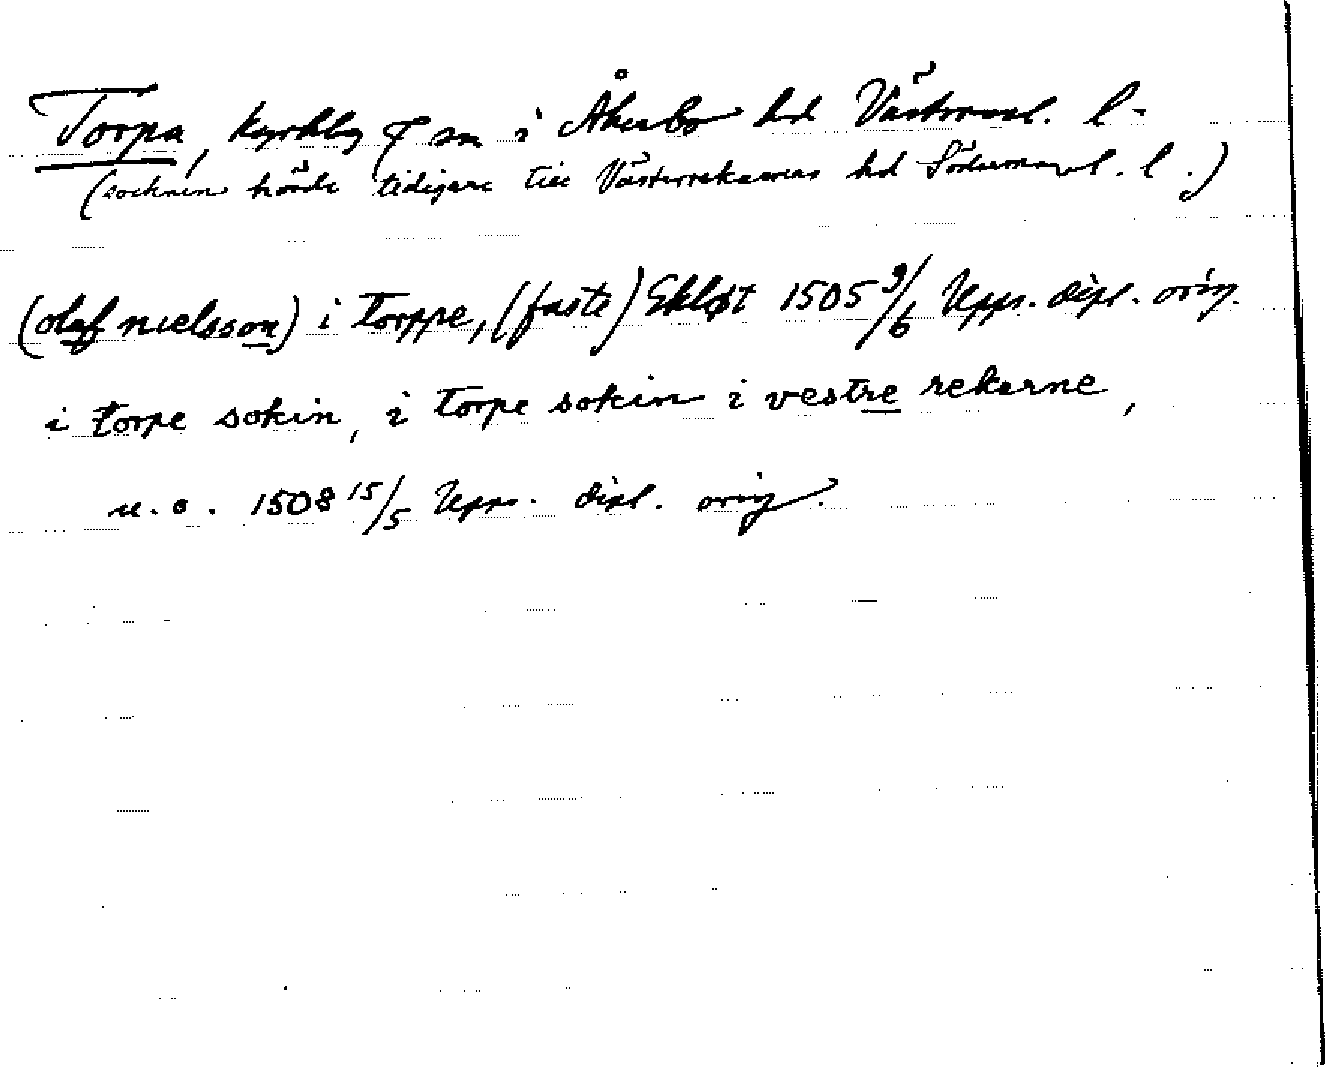 Torpa, kyrkby o sn i Åkerbo hd Västmanl. l.
(socknen hörde tidigare till Västerrekarnes hd Södermanl. l.)
(olaf nielsson) i torppe, (faste) Ekløt 1505 9/6 Upps. dipl. orig.
i torpe sokin, i torpe sokin i vestre rekarne,
u. o. 1508 15/5 Upps. dipl. orig.